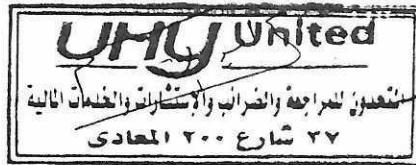 UHY United
المتحدون للمراجعة والضرائب والإستشارات والخدمات المالية
٢٧ شارع ٢٠٠ المعادى